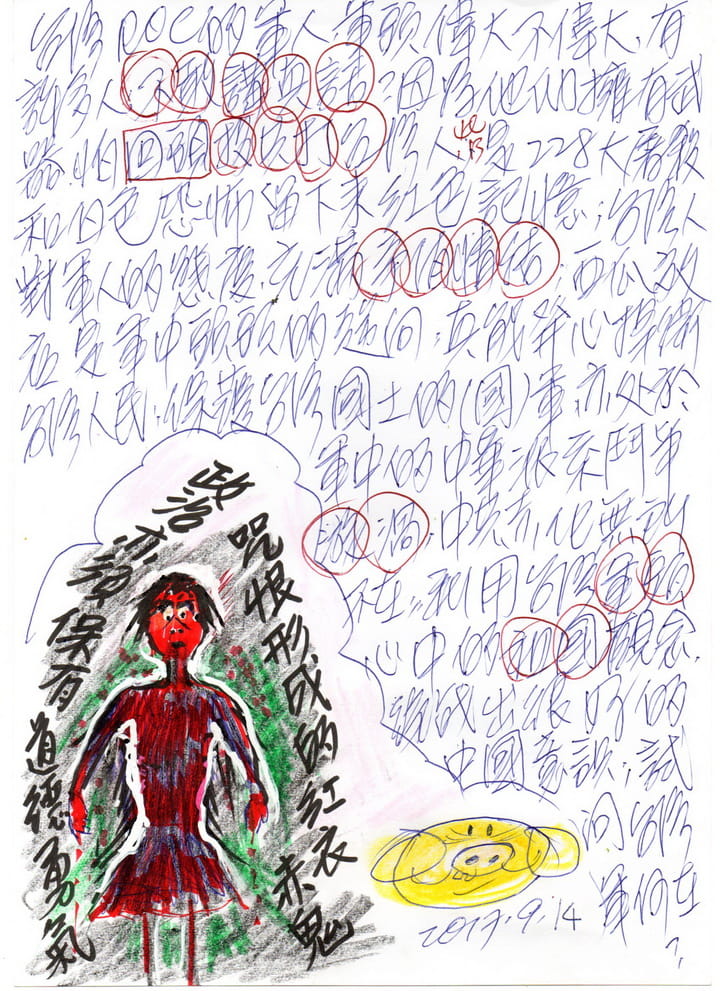 台灣ROC的軍人軍頭偉大不偉大,有
許多人不敢講真話,因為他們擁有武
器,怕回頭打台灣人,也許是228大屠殺
和白色恐怖留下來紅色記憶;台灣人
對軍人的態度,充滿情結.西瓜效
在是軍中頭頭的趨向.真能
台灣人民.保護台灣國土的(國)軍,亦處於
軍中的中華派系鬥爭
漩渦,中共赤化無
不在,利用台灣軍頭
心中的祖國觀念
出很好的
中國意識;試
問台灣
軍何在?
政治亦須保有道德勇氣
咒恨形成的紅衣赤鬼
2017.9.14